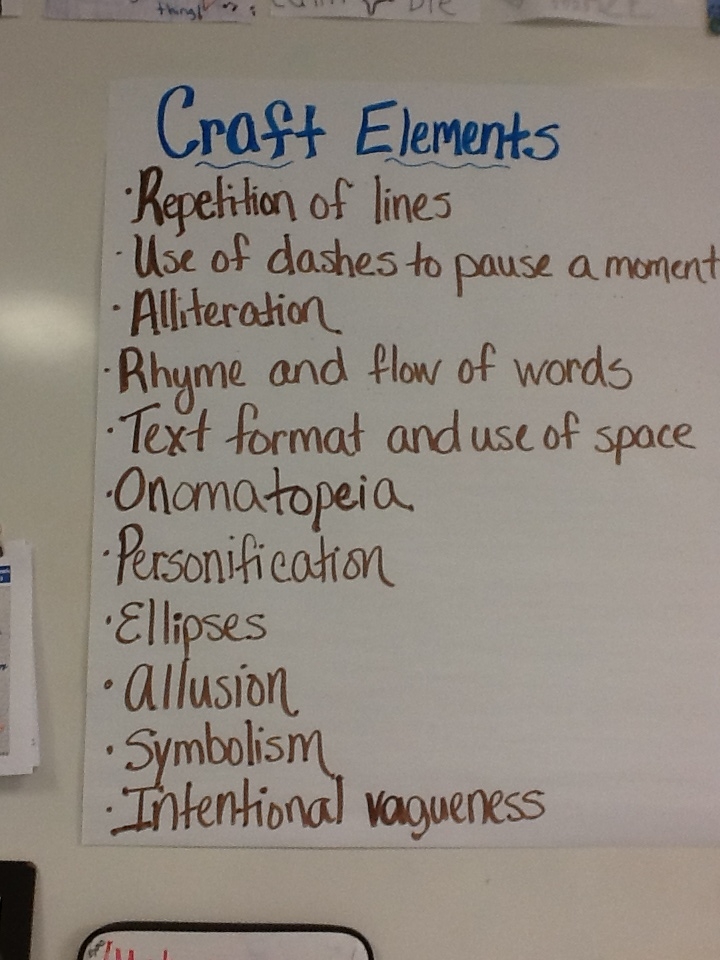 thing!
Craft Elements
· Repetition of lines
· Use of dashes to pause a moment
· Alliteration
· Rhyme and flow of words
· Text format and use of space
· Onomatopeia
· Personification
· Ellipses
· Allusion
· Symbolism
· Intentional vagueness